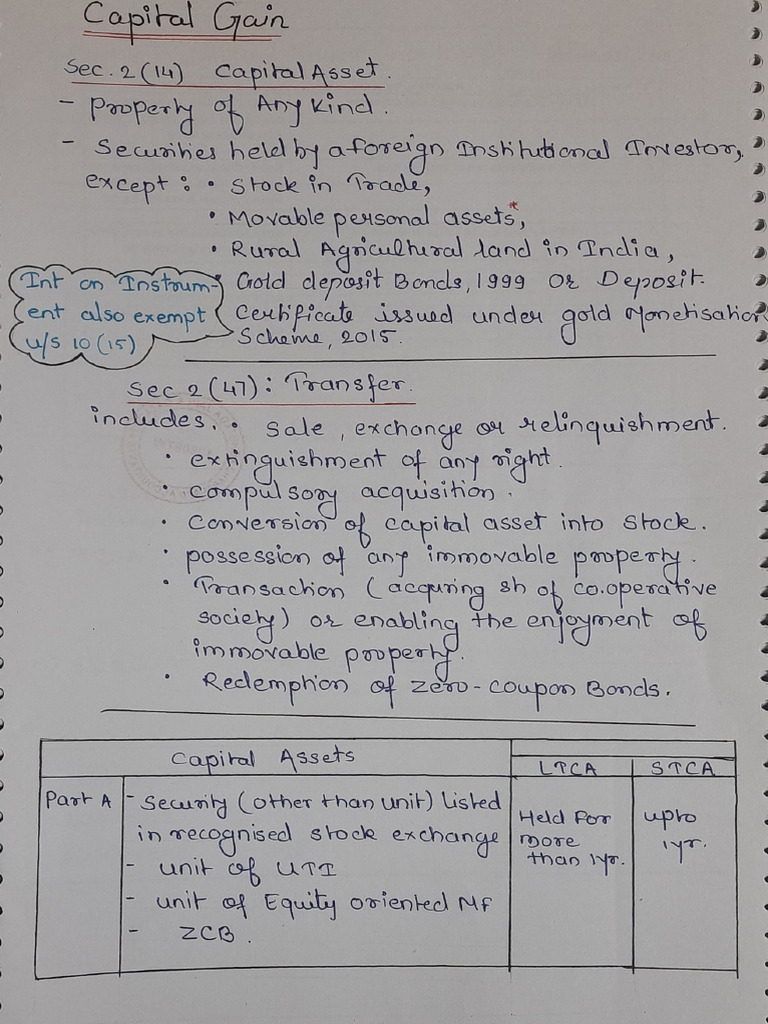 Capital Gain
Sec. 2 (14) Capital Asset.
- Property of Any Kind.
- Securities held by a foreign Institutional Investor,
except : • Stock in Trade,
• Movable personal assets*,
• Rural Agricultural land in India,
• Gold deposit Bonds, 1999 or Deposit
Certificate issued under gold Monetisation
Scheme, 2015.
Int on Instrum-
ent also exempt
u/s 10 (15)
Sec 2 (47) : Transfer.
includes. • Sale, exchange or relinquishment.
• extinguishment of any right.
• compulsory acquisition.
• Conversion of capital asset into stock.
• possession of any immovable property.
• Transaction (acquring sh of co.operative
society) or enabling the enjoyment of
immovable property.
• Redemption of zero-coupon Bonds.
Capital Assets
LTCA
STCA
Part A
- Security (other than unit) Listed
in recognised stock exchange
- unit of UTI
- unit of Equity oriented MF
- ZCB.
Held for
more
than 1yr.
upto
1yr.